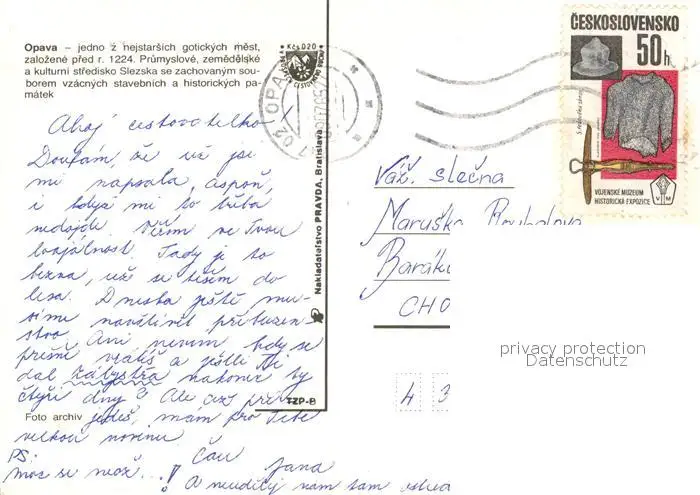 Opava – jedno z nejstarších gotických měst,
založené před r. 1224. Průmyslové, zemědělské
a kulturní středisko Slezska se zachovaným sou-
borem vzácných stavebních a historických pa-
mátek
Ahoj cestovatelko!
Doufám, že už jsi
mi napsala aspoň,
i když mi to třeba
nedojde. Věřím ve Tvou
loajálnost. Tady je to
bezva, už se těším do
lesa. Dneska ještě mu-
síme navštívit příbuzen-
stvo. Ani nevím kdy se
přesně vrátíš a jestli Ti
dal nakonec ty
čtyři dny? Ale až při-
jedeš, mám pro Tebe
velkou novinu
Čau Jana
PS:
moc se neož...!
A neudělej nám tam
Foto archiv
Kčs 0,20
Nakladatelství PRAVDA, Bratislava
TZP-B
OPAVA
ČESKOSLOVENSKO
50 h
VOJENSKÉ MUZEUM
HISTORICKÁ EXPOZICE
V M
Váž. slečna
Maruška
Barák
CHO
4 3
privacy protection
Datenschutz